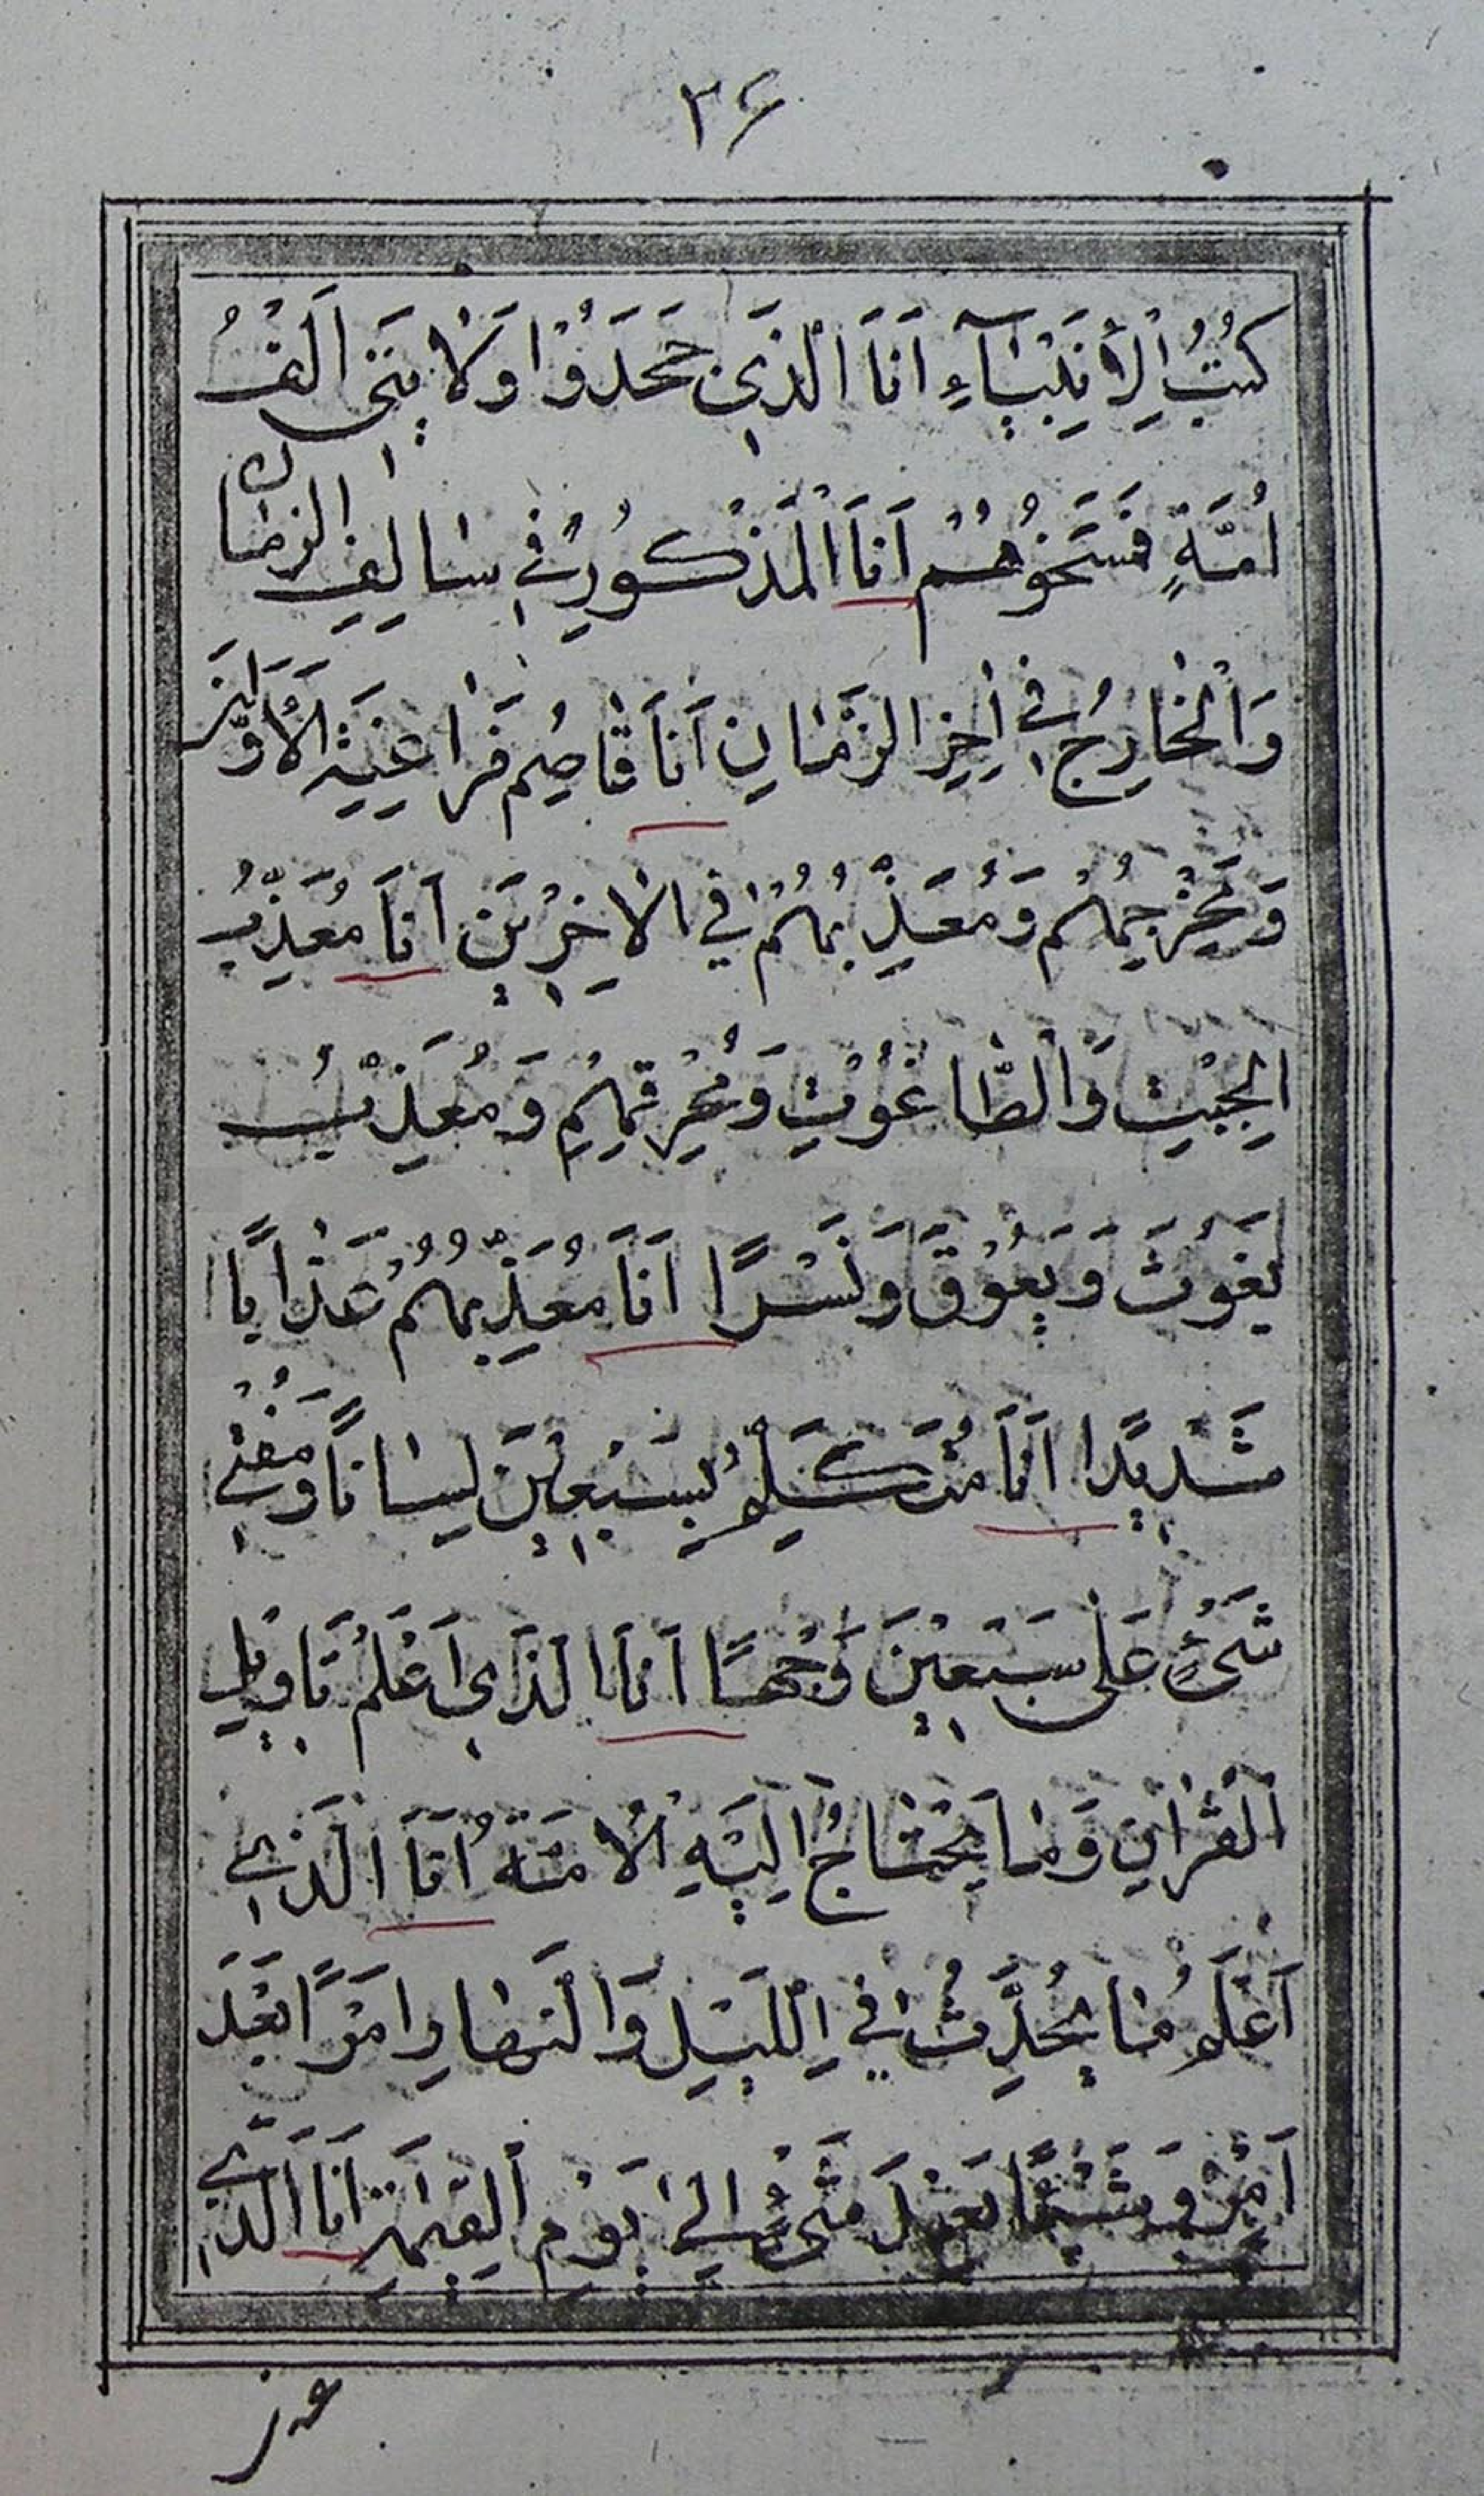 ۳۶
كُتُبُ الْأَنْبِيَآءِ اَنَا الَّذٖي جَحَدَوُا وَلَايَتٖي اَلْفُ
اُمَّةٍ فَمَسَخُوهُمْ اَنَا الْمَذْكُورُ فٖي سَالِفِ الزَّمَانِ
وَالْخَارِجُ فٖي اٰخِرِ الزَّمَانِ اَنَا قَاصِمُ فَرَاعِنَةِ الْاَوَّلٖينَ
وَمُخْرِجُهُمْ وَمُعَذِّبُهُمْ فِي الْاٰخِرٖينَ اَنَا مُعَذِّبُ
الْجِبْتِ وَالطَّاغُوتِ وَمُحْرِقُهُمْ وَمُعَذِّبُ
يَغُوثَ وَيَعُوقَ وَنَسْرًا اَنَا مُعَذِّبُهُمْ عَذَابًا
شَدٖيدًا اَنَا مُتَكَلِّمٌ بِسَبْعٖينَ لِسَانًا وَمُفْتٖي
شَيْءٍ عَلٰى سَبْعٖينَ وَجْهًا اَنَا الَّذٖي اَعْلَمُ تَاوٖيلَ
الْقُرْاٰنِ وَمَا يَحْتَاجُ اِلَيْهِ الْاُمَّةُ اَنَا الَّذٖي
اَعْلَمُ مَا يُحَدِّثُ فِي اللَّيْلِ وَالنَّهَارِ اَمْرًا بَعْدَ
اَمْرٍ وَشَيْئًا بَعْدَ شَيْءٍ اِلٰى يَوْمِ الْقِيٰمَةِ اَنَا الَّذٖي